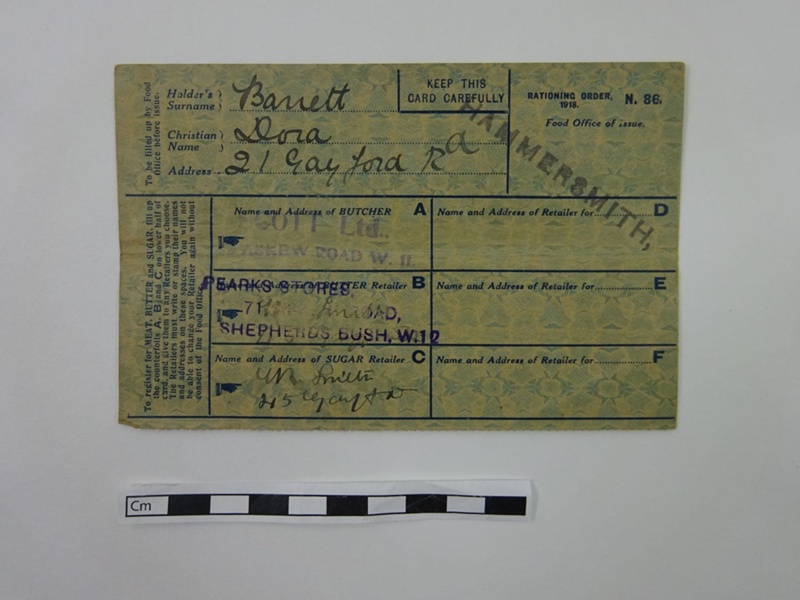 To be filled up by Food
Office before issue.
Holder's
Surname
Barrett
Christian
Name
Dora
Address
21 Gayford Rd
KEEP THIS
CARD CAREFULLY
RATIONING ORDER,
1918.
N. 86.
Food Office of issue.
HAMMERSMITH,
To register for MEAT, BUTTER and SUGAR, fill up
the counterfoils A, B, and C on lower half of
card, and give them to any Retailers you choose.
The Retailers must write or stamp their names
and addresses on these spaces. You will not
be able to change your Retailer again without
consent of the Food Office.
Name and Address of BUTCHER A
OTT Ltd.
ROAD W. 11
Name and Address of BUTTER Retailer B
PEARKS STORES,
7
SHEPHERDS BUSH, W.12
Name and Address of SUGAR Retailer C
Smith
45 Gayf
Name and Address of Retailer for D
Name and Address of Retailer for E
Name and Address of Retailer for F
Cm